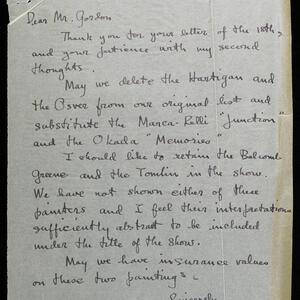 Dear Mr. Gordon
Thank you for your letter of the 18th,
and your patience with my second
thoughts.
May we delete the Hartigan and
the Osver from our original list and
substitute the Marca-Relli "Junction"
and the Okada "Memories"
I should like to retain the Balcomb
Greene and the Tomlin in the show.
We have not shown either of these
painters and I feel their interpretations
sufficiently abstract to be included
under the title of the show.
May we have insurance values
on these two paintings.
Sincerely